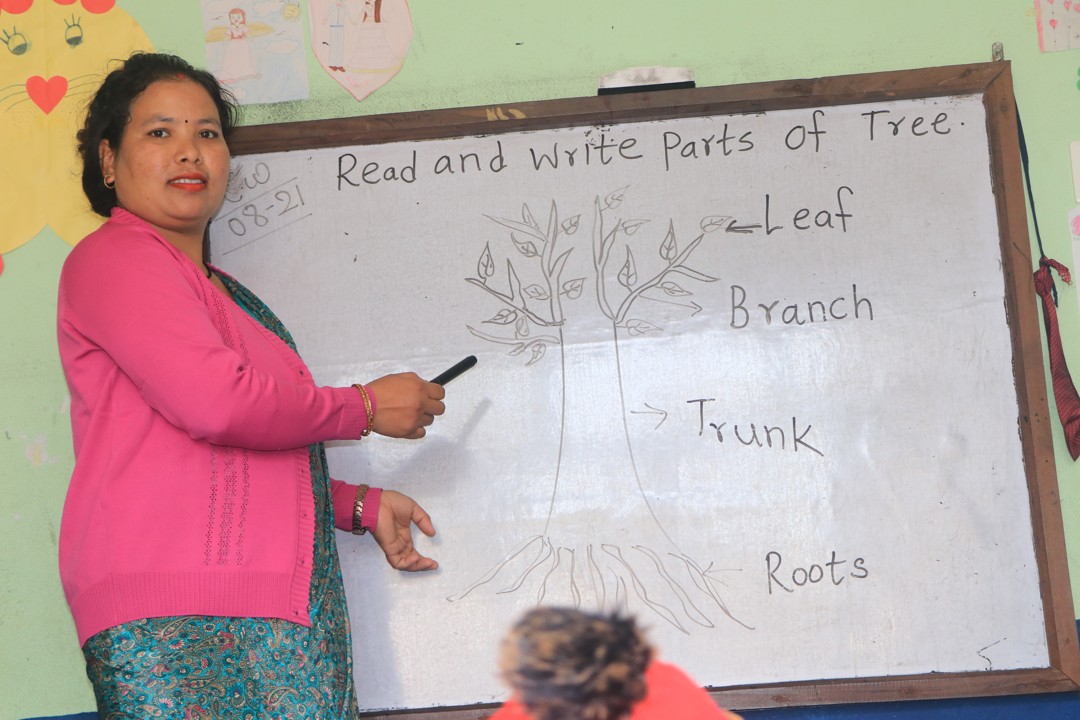 Read and Write Parts of Tree.
C.W
08-21
Leaf
Branch
Trunk
Roots